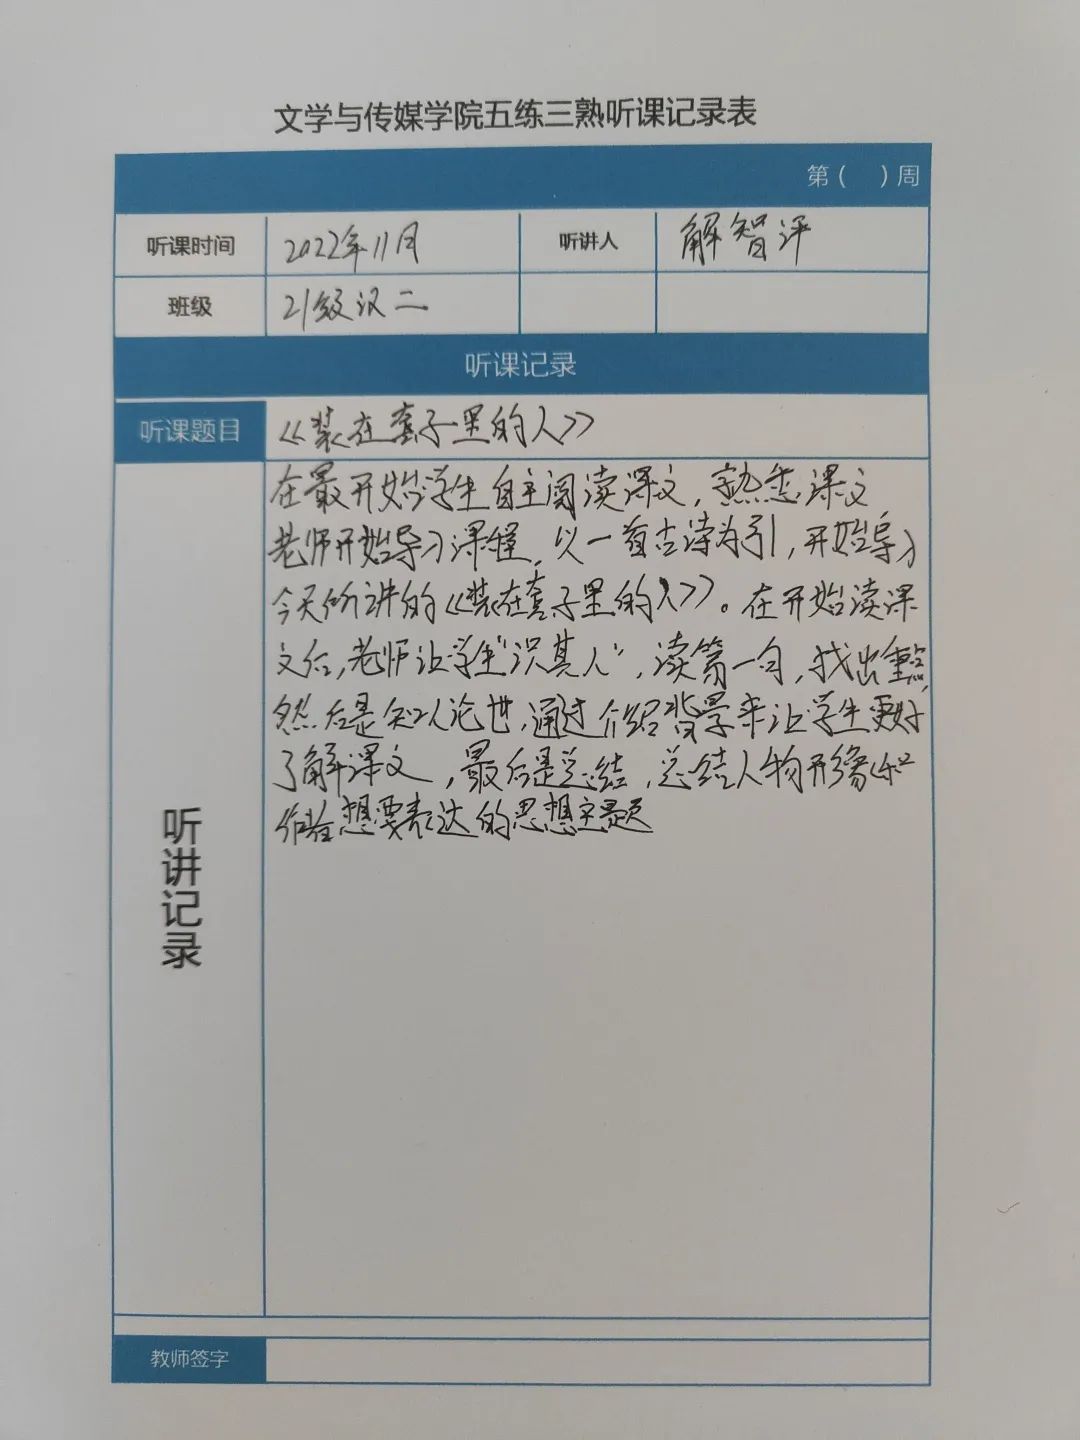 文学与传媒学院五练三熟听课记录表
第（ ）周
听课时间 2022年11月 听讲人 解智评
班级 21级汉二
听课记录
听课题目 《装在套子里的人》
在最开始学生自主阅读课文，熟悉课文，
老师开始导习课程，以一首古诗为引，开始导习
今天所讲的《装在套子里的人》。在开始读课
文后，老师让学生“识其人”，读第一句，找出
然后是知人论世，通过介绍背景来让学生更好
了解课文，最后是总结，总结人物形象和
作者想要表达的思想主题
听讲记录
教师签字